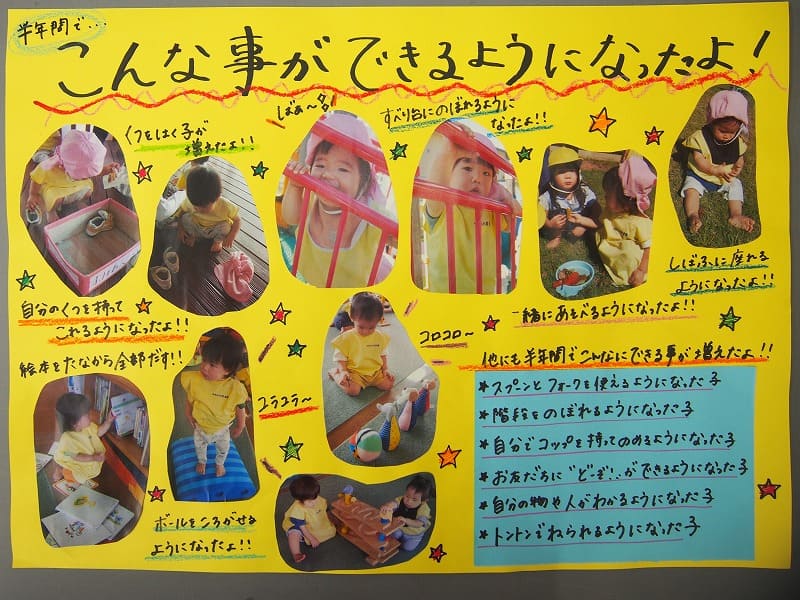 半年間で・・・
こんな事ができるようになったよ！
くつをはく子が
増えたよ！！
ばぁ～
すべり台にのぼれるように
なったよ！！
しばふに座れる
ようになったよ！！
自分のくつを持って
これるようになったよ！！
一緒にあそべるようになったよ！！
コロコロ～
絵本をたなから全部だす！！
ユラユラ～
ボールをころがせる
ようになったよ！！
他にも半年間でこんなにできる事が増えたよ！！
★スプーンとフォークを使えるようになった子
★階段をのぼれるようになった子
★自分でコップを持ってのめるようになった子
★お友だちに"どーぞ!"ができるようになった子
★自分の物や人がわかるようになった子
★トントンでねられるようになった子